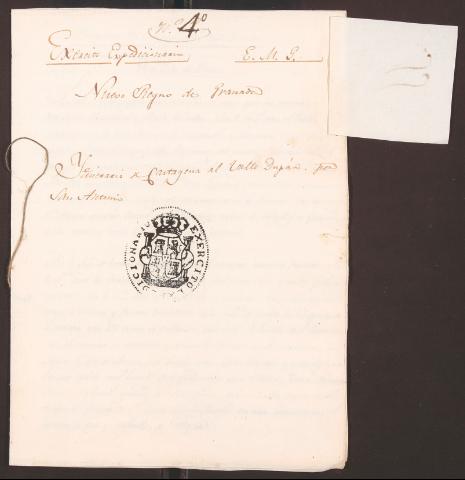 N.º 4º
Exército Expedicionario E. M. G.
Nuevo Reyno de Granada
Ytinerario de Cartagena al Valle Dupár, por
San Antonio
EXERCITO EXPEDICIONARIO